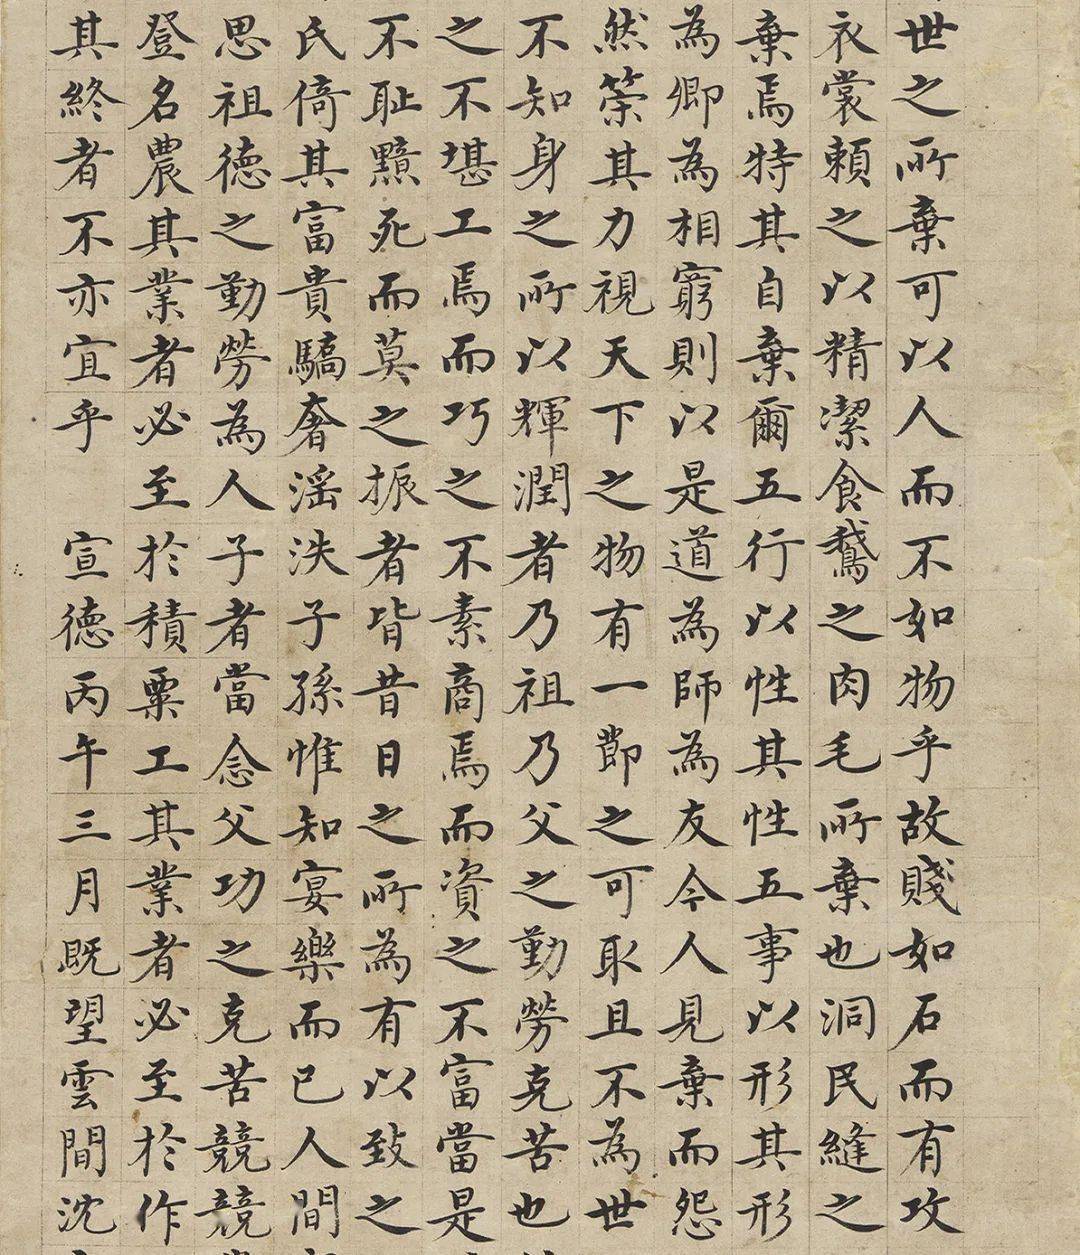 世之所棄可以人而不如物乎故賤如石而有攻
衣裳賴之以精潔食鵝之肉毛所棄也洞民縫之
棄焉特其自棄爾五行以性其性五事以形其形
為卿為相窮則以是道為師為友今人見棄而怨
然策其力視天下之物有一節之可取且不為世
不知身之所以輝潤者乃祖乃父之勤勞克苦也
之不堪工焉而巧之不素商焉而資之不富當是
不耻黥死而莫之振者皆昔日之所為有以致之
氏倚其富貴驕奢淫泆子孫惟知宴樂而已人間
思祖德之勤勞為人子者當念父功之克苦競競
登名農其業者必至於積粟工其業者必至於作
其終者不亦宜乎 宣德丙午三月既望雲間沈